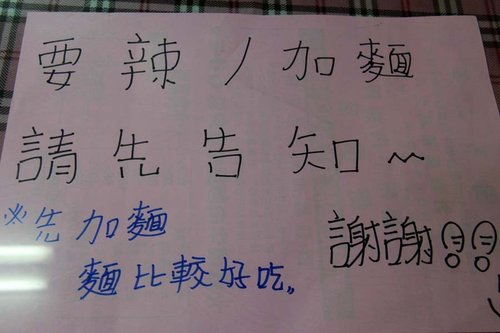 要辣/加麵
請先告知~
※先加麵
麵比較好吃。
謝謝!!